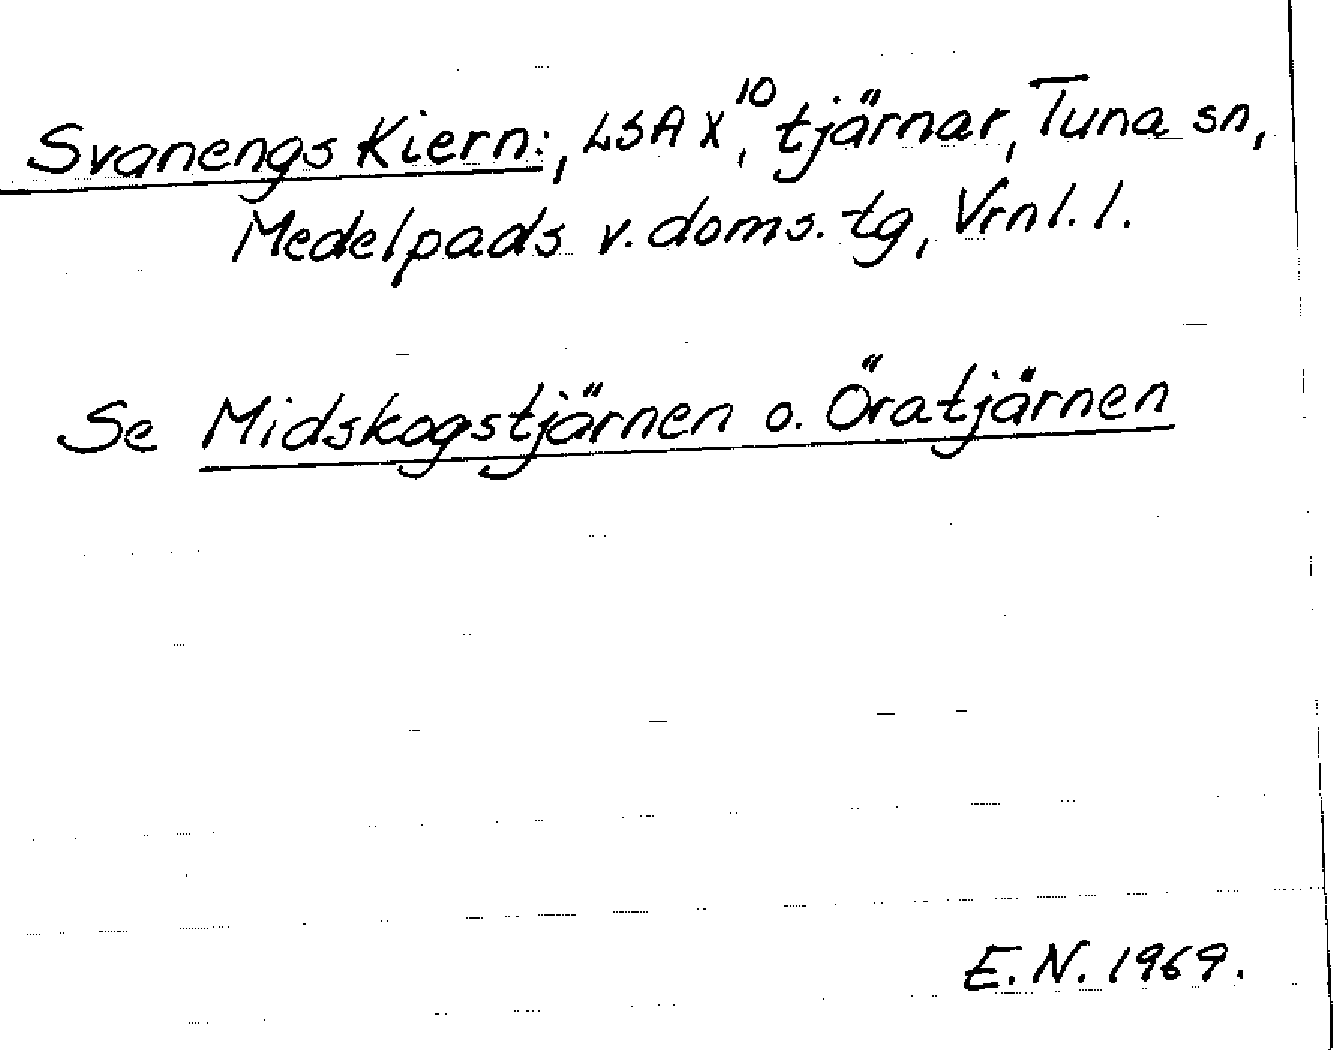 Svanengs Kiern:, LSA X¹⁰, tjärnar, Tuna sn,
Medelpads v. doms. tg, Vrnl. l.
Se Midskogstjärnen o. Öratjärnen
E. N. 1969.